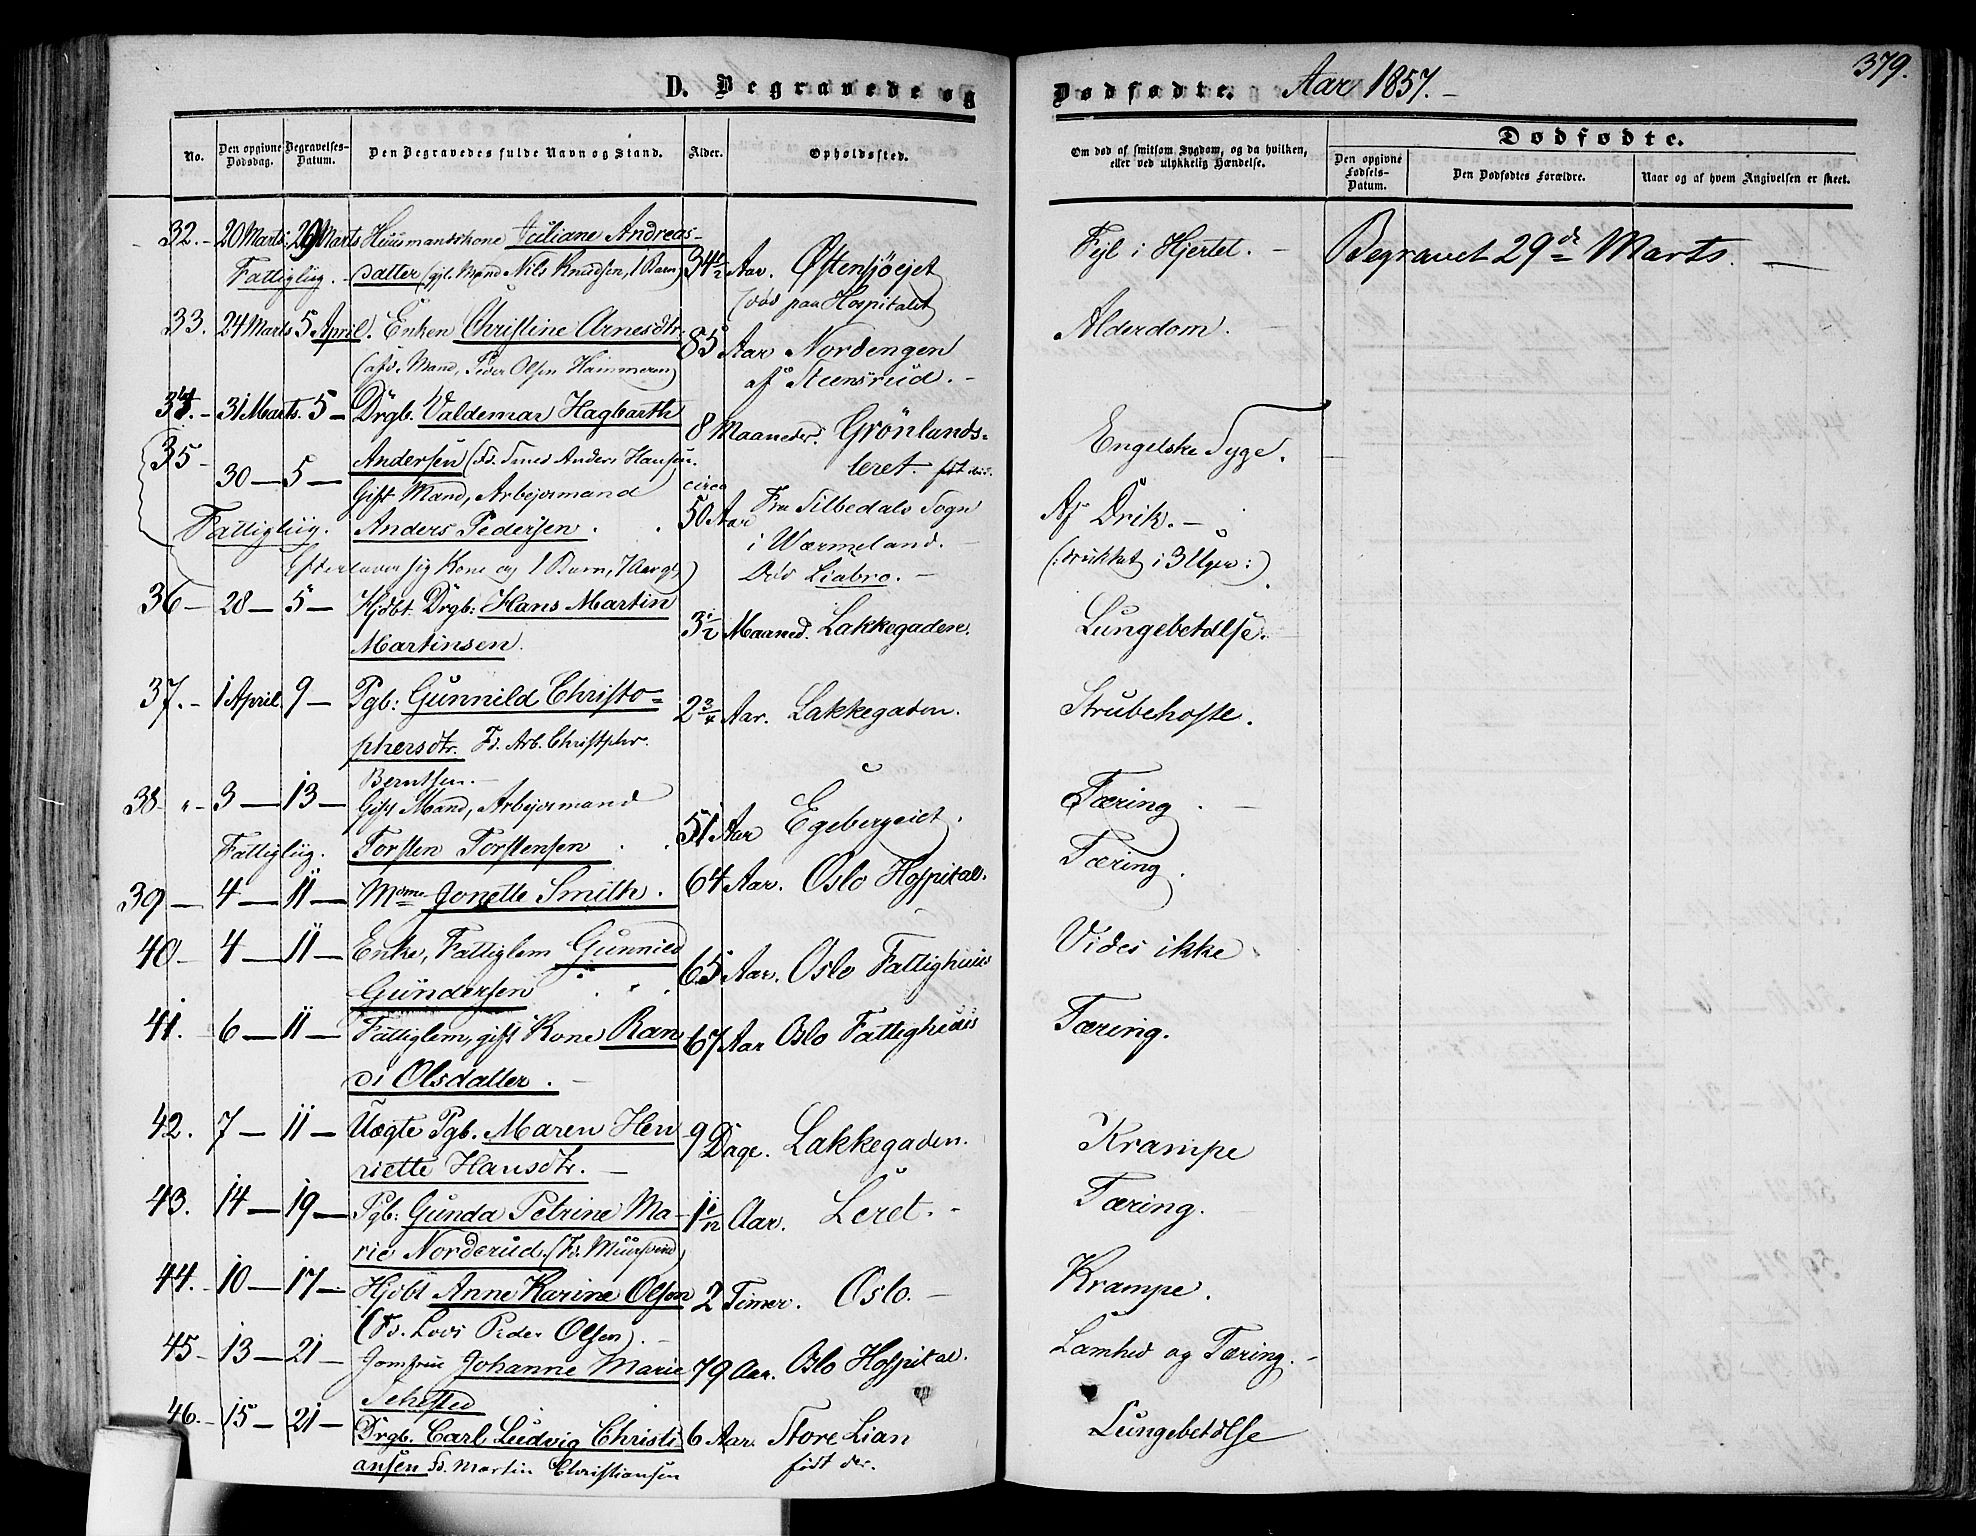 379.
D. Begravede og Dødfødte. Aar 1857.-
No.
Den opgivne Dødsdag.
Begravelses-Datum.
Den Begravedes fulde Navn og Stand.
Alder.
Opholdssted.
Om død af smitsom Sygdom, og da hvilken, eller ved ulykkelig Hændelse.
Dødfødte.
Den opgivne Fødsels-Datum.
Den Dødfødtes Forældre.
Naar og af hvem Angivelsen er skeet.
32.- 20 Marts 29 Marts Huusmandskone Juliane Andreas- 34½ Aar. Østensjøejet Fejl i Hjertet.- Begravet 29de Marts.
Fattiglig. datter (gft. Mand Nils Knudsen, 1 Barn) (død paa Hospitalet
33. 24 Marts 5 April. Enken Christine Arnesdtr. 85 Aar Nordengen Alderdom.
(afd. Mand, Peder Olsen Hammeren) af Steensrud.-
34.- 31 Marts. 5- Drgb. Valdemar Hagbarth 8 Maaneder. Grønlands- Engelske Syge.
Andersen (Fd. Smed Anders Hansen. leret. født der.
35- 30- 5- Gift Mand, Arbejdsmand circa 50 Aar Fra Silbedals Sogn Af Drik.-
Fattigliig. Anders Pedersen. i Wærmeland.-
Efterlader sig Kone og 1 Barn, 7 Aar gl.) Død Liabro.- (:drukket i 3 Uger:)
36- 28- 5- Hjdbt. Drgb: Hans Martin 3½ Maaned. Lakkegaden. Lungebetdlse.
Martinsen.
37.- 1 April 9- Pgb: Gunnild Christo- 2¾ Aar. Lakkegaden. Strubehoste.
phersdtr. Fd. Arb. Christpher.
Berntsen.-
38- 3- 13- Gift Mand, Arbejdsmand 51 Aar Egebergeiet. Tæring.
Fattigliig. Torsten Torstensen
39- 4- 11- Mdme Jonette Smith. 64 Aar. Oslo Hospital. Tæring.
40- 4- 11- Enke, Fattiglem Gunnild 65 Aar. Oslo Fattighuus Vides ikke
Gundersen
41. 6- 11- Fattiglem, gift Kone Ran 67 Aar Oslo Fattighuus Tæring.
di Olsdatter.-
42. 7- 11- Uægte Pgb. Maren Hen 9 Dage. Lakkegaden. Krampe
riette Hansdtr.-
43. 14- 19- Pgb: Gunda Petrine Ma- 1 1/12 Aar. Leret.- Tæring.
rie Norderud. (Fd. Muursvend)
44.- 10- 17- Hjdbt Anne Karine Olsen 2 Timer. Oslo.- Krampe.
(Fd. Lods Peder Olsen).-
45- 13- 21- Jomfru Johanne Marie 79 Aar. Oslo Hospital. Lamhed og Tæring.-
Sehested
46.- 15- 21- Drgb. Carl Ludvig Christi 6 Aar. Store Lian Lungebetdlse
ansen Fd. Martin Christiansen født der.